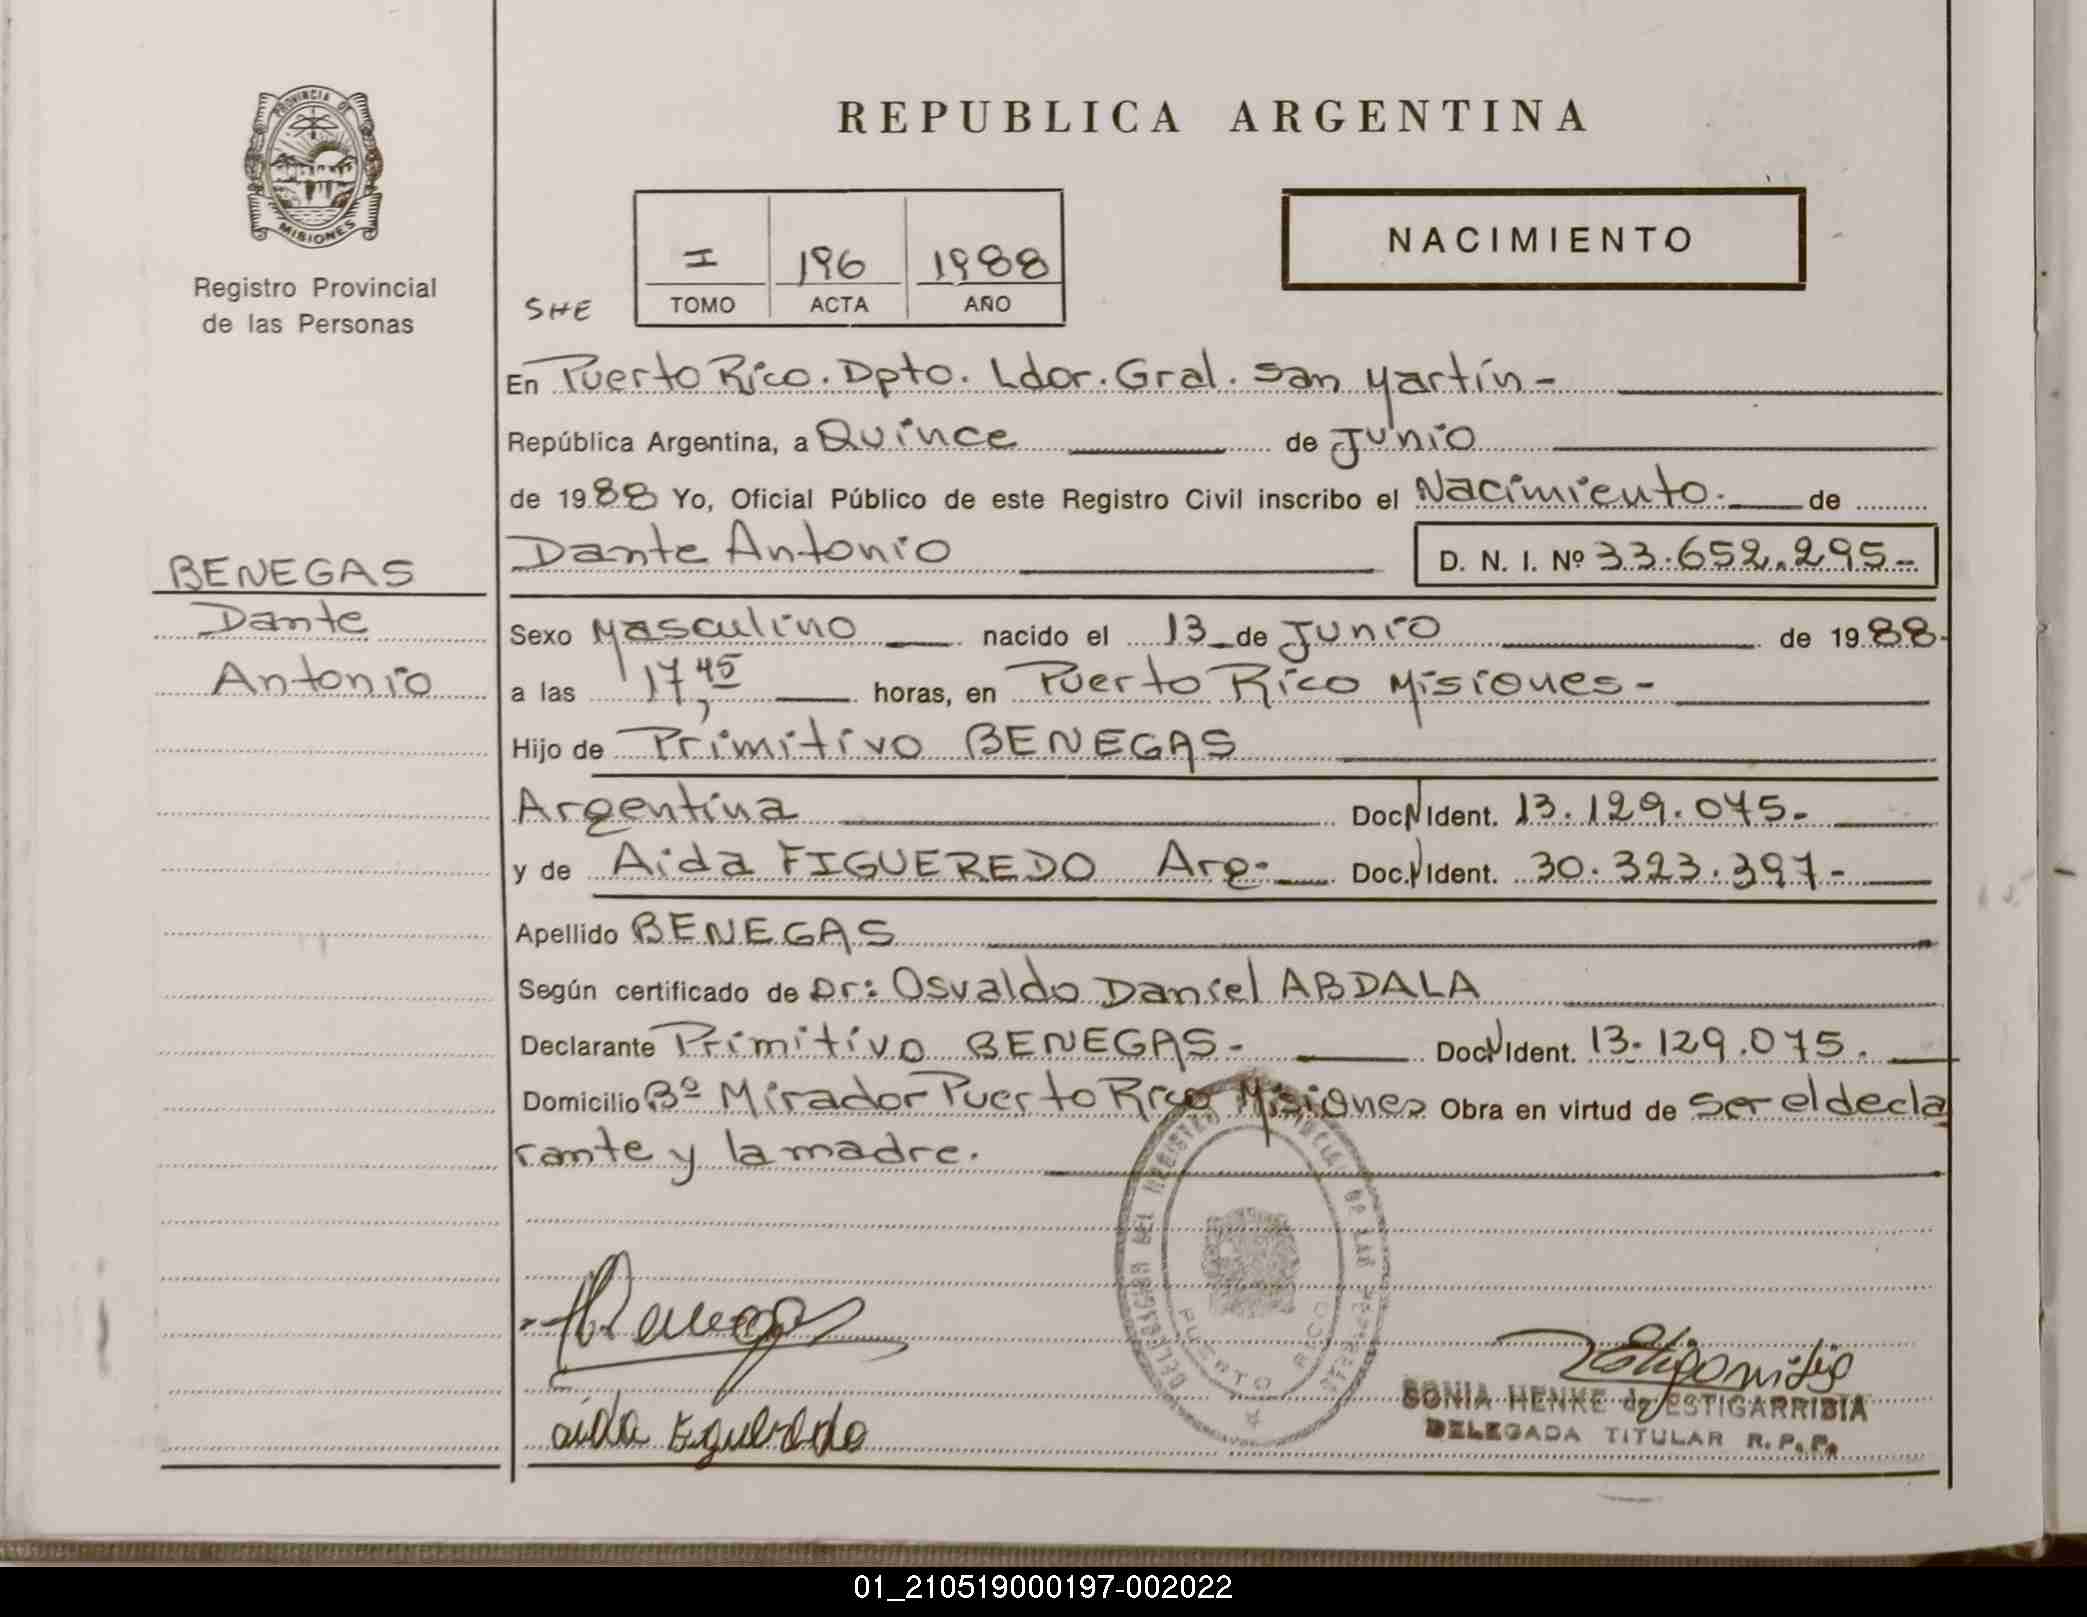 PROVINCIA DE
MISIONES
Registro Provincial
de las Personas
REPUBLICA ARGENTINA
NACIMIENTO
I 196 1988
TOMO ACTA AÑO
SHE
En Puerto Rico. Dpto. Ldor. Gral. San Martín-
República Argentina, a Quince de Junio
de 1988 Yo, Oficial Público de este Registro Civil inscribo el Nacimiento. de
Dante Antonio D. N. I. Nº 33.652.295-
BENEGAS
Dante
Antonio
Sexo Masculino nacido el 13 de Junio de 1988-
a las 17,45 horas, en Puerto Rico Misiones-
Hijo de Primitivo BENEGAS
Argentina Doc N Ident. 13.129.075-
y de Aida FIGUEREDO Arg- Doc. N Ident. 30.323.397-
Apellido BENEGAS
Según certificado de Dr: Osvaldo Daniel ABDALA
Declarante Primitivo BENEGAS- Doc N Ident. 13.129.075.
Domicilio Bº Mirador Puerto Rico Misiones Obra en virtud de Ser el decla
rante y la madre.
DELEGACION DEL REGISTRO PROVINCIAL DE LAS PERSONAS
PUERTO RICO
Benegas
aida Figueredo
SONIA HENKE de ESTIGARRIBIA
DELEGADA TITULAR R. P. P.
01_210519000197-002022